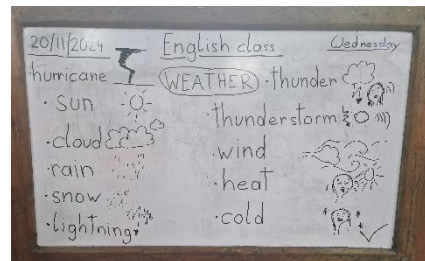 20/11/2024 English class Wednesday
hurricane WEATHER · thunder
· sun
· cloud
· rain
· snow
· lightning
· thunderstorm
· wind
· heat
· cold